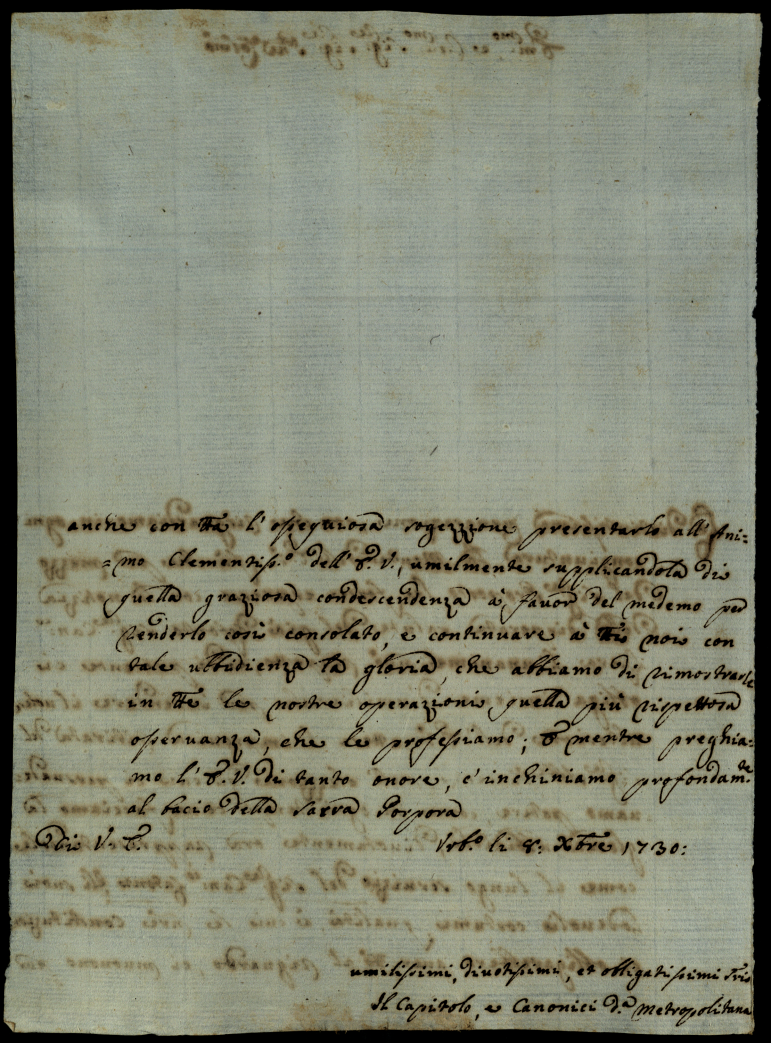 anche con tta l'osseguiosa sogezzione presentarlo all'Ani=
=mo Clementiss.o dell'E. V., umilmente supplicandola di
quella graziosa condescendenza à favor del medemo per
renderlo così consolato, e continuare à tti noi con
tale ubbidienza la gloria, che abbiamo di rimostrarle
in tte le nostre operazioni quella più rispettosa
osservanza, che le professiamo; E mentre preghia-
mo l'E. V. di tanto onore, c'inchiniamo profondam.te
al bacio della sacra Porpora
Di V. E. Urb.o li 8: Xbre 1730:
umilissimi, divotissimi, et obbligatissimi
Il Capitolo, e Canonici d.a Metropolitana